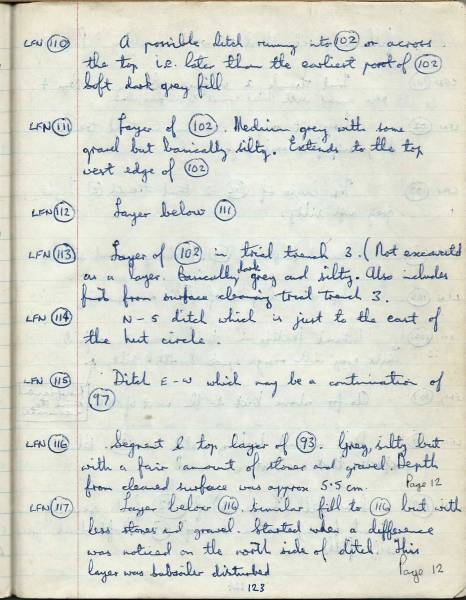 LFN 110 A possible ditch running into 102 or across
the top i.e. later than the earliest part of 102
Soft dark grey fill
LFN 111 Layer of 102. Medium grey with some
gravel but basically silty. Extends to the top
west edge of 102
LFN 112 Layer below 111
LFN 113 Layer of 103 in trial trench 3. (Not excavated
as a layer. Basically dark grey and silty. Also includes
finds from surface cleaning trial trench 3.
LFN 114 N-S ditch which is just to the east of
the hut circle.
LFN 115 Ditch E-W which may be a continuation of
97
LFN 116 Segment l top layer of 93. Grey, silty but
with a fair amount of stones and gravel. Depth
from cleaned surface was approx 5.5 cm. Page 12
LFN 117 Layer below 116 similar fill to 116 but with
less stones and gravel. Started when a difference
was noticed on the north side of ditch. This
layer was subsoiler disturbed Page 12
123